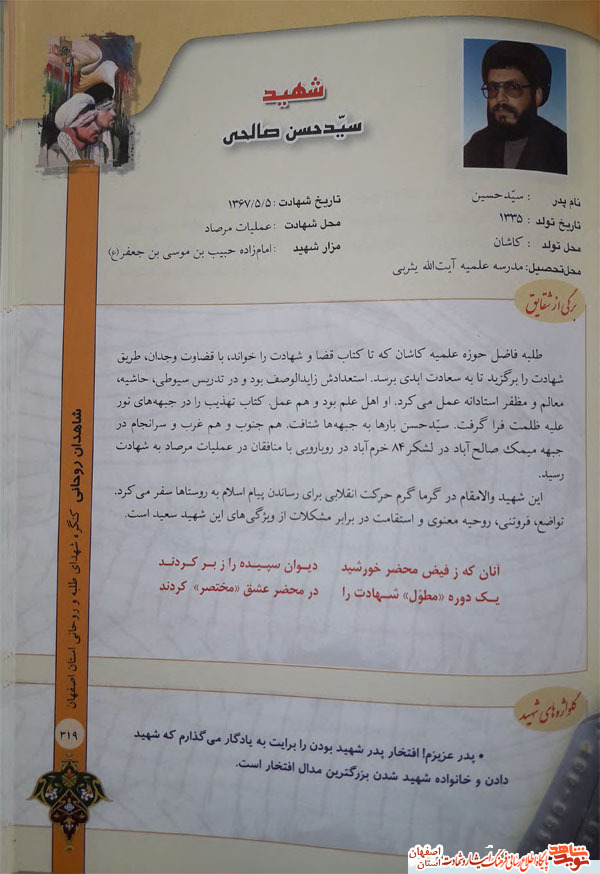 شهید
سیّدحسن صالحی
نام پدر : سیّدحسین
تاریخ تولد : ۱۳۳۵
محل تولد : کاشان
محل‌تحصیل: مدرسه علمیه آیت‌الله یثربی
تاریخ شهادت : ۱۳۶۷/۵/۵
محل شهادت : عملیات مرصاد
مزار شهید : امام‌زاده حبیب بن موسی بن جعفر(ع)
برگی از شقایق
طلبه فاضل حوزه علمیه کاشان که تا کتاب قضا و شهادت را خواند، با قضاوت وجدان، طریق
شهادت را برگزید تا به سعادت ابدی برسد. استعدادش زایدالوصف بود و در تدریس سیوطی، حاشیه،
معالم و مظفر استادانه عمل می‌کرد. او اهل علم بود و هم عمل. کتاب تهذیب را در جبهه‌های نور
علیه ظلمت فرا گرفت. سیّدحسن بارها به جبهه‌ها شتافت. هم جنوب و هم غرب و سرانجام در
جبهه میمک صالح آباد در لشکر ۸۴ خرم‌آباد در رویارویی با منافقان در عملیات مرصاد به شهادت
رسید.
این شهید والامقام در گرما گرم حرکت انقلابی برای رساندن پیام اسلام به روستاها سفر می‌کرد.
تواضع، فروتنی، روحیه معنوی و استقامت در برابر مشکلات از ویژگی‌های این شهید سعید است.
آنان که ز فیض محضر خورشید دیوان سپیده را ز بر کردند
یک دوره «مطوّل» شهادت را در محضر عشق «مختصر» کردند
گلواژه‌های شهید
• پدر عزیزم! افتخار پدر شهید بودن را برایت به یادگار می‌گذارم که شهید
دادن و خانواده شهید شدن بزرگترین مدال افتخار است.
شاهدان روحانی کنگره شهدای طلبه و روحانی استان اصفهان
۳۱۹
نوید شاهد
پایگاه اطلاع رسانی فرهنگ ایثار و شهادت
اصفهان
استان